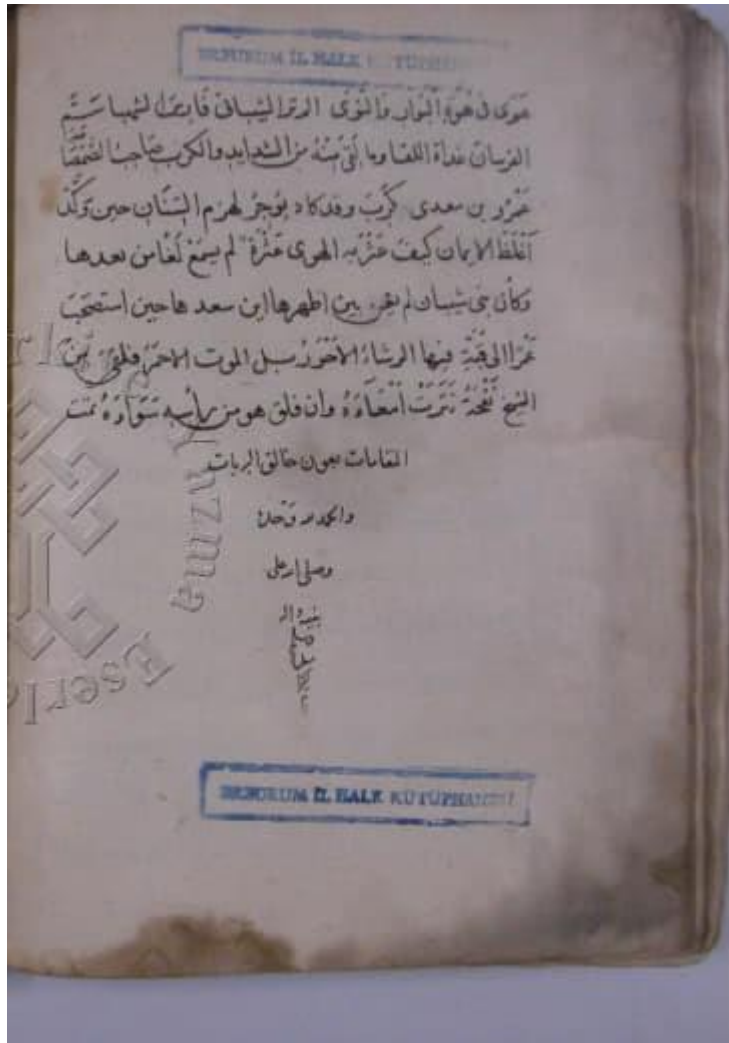 ERZURUM İL HALK KÜTÜPHANESİ
هوى في هوة البوار والتوى الوتر الشيباني فارس الشهبا سم
الفرسان غداة اللقا وما لقي منه من الشدايد والكرب صاحب الصمصا
عمرو بن معدي كرب وقد كاد يوجر لهزم السنان حين توكد
اغلظ الايمان كيف عثر به الهوى عثرة لم يسمع لعا من بعدها
وكان بني شيبان لم يغن بين اظهرها ابن سعدها حين استصحب
الى فيها الرشاء الاحور سبل الموت الاحمر فلقي من
الشيخ نفحة نثرت امعاءه وان فلق هو من راسه سواده تمت
المقامات بعون خالق البريات
والحمد لله وحده
وصلى الله على
ERZURUM İL HALK KÜTÜPHANESİ
Yazma
Eserle